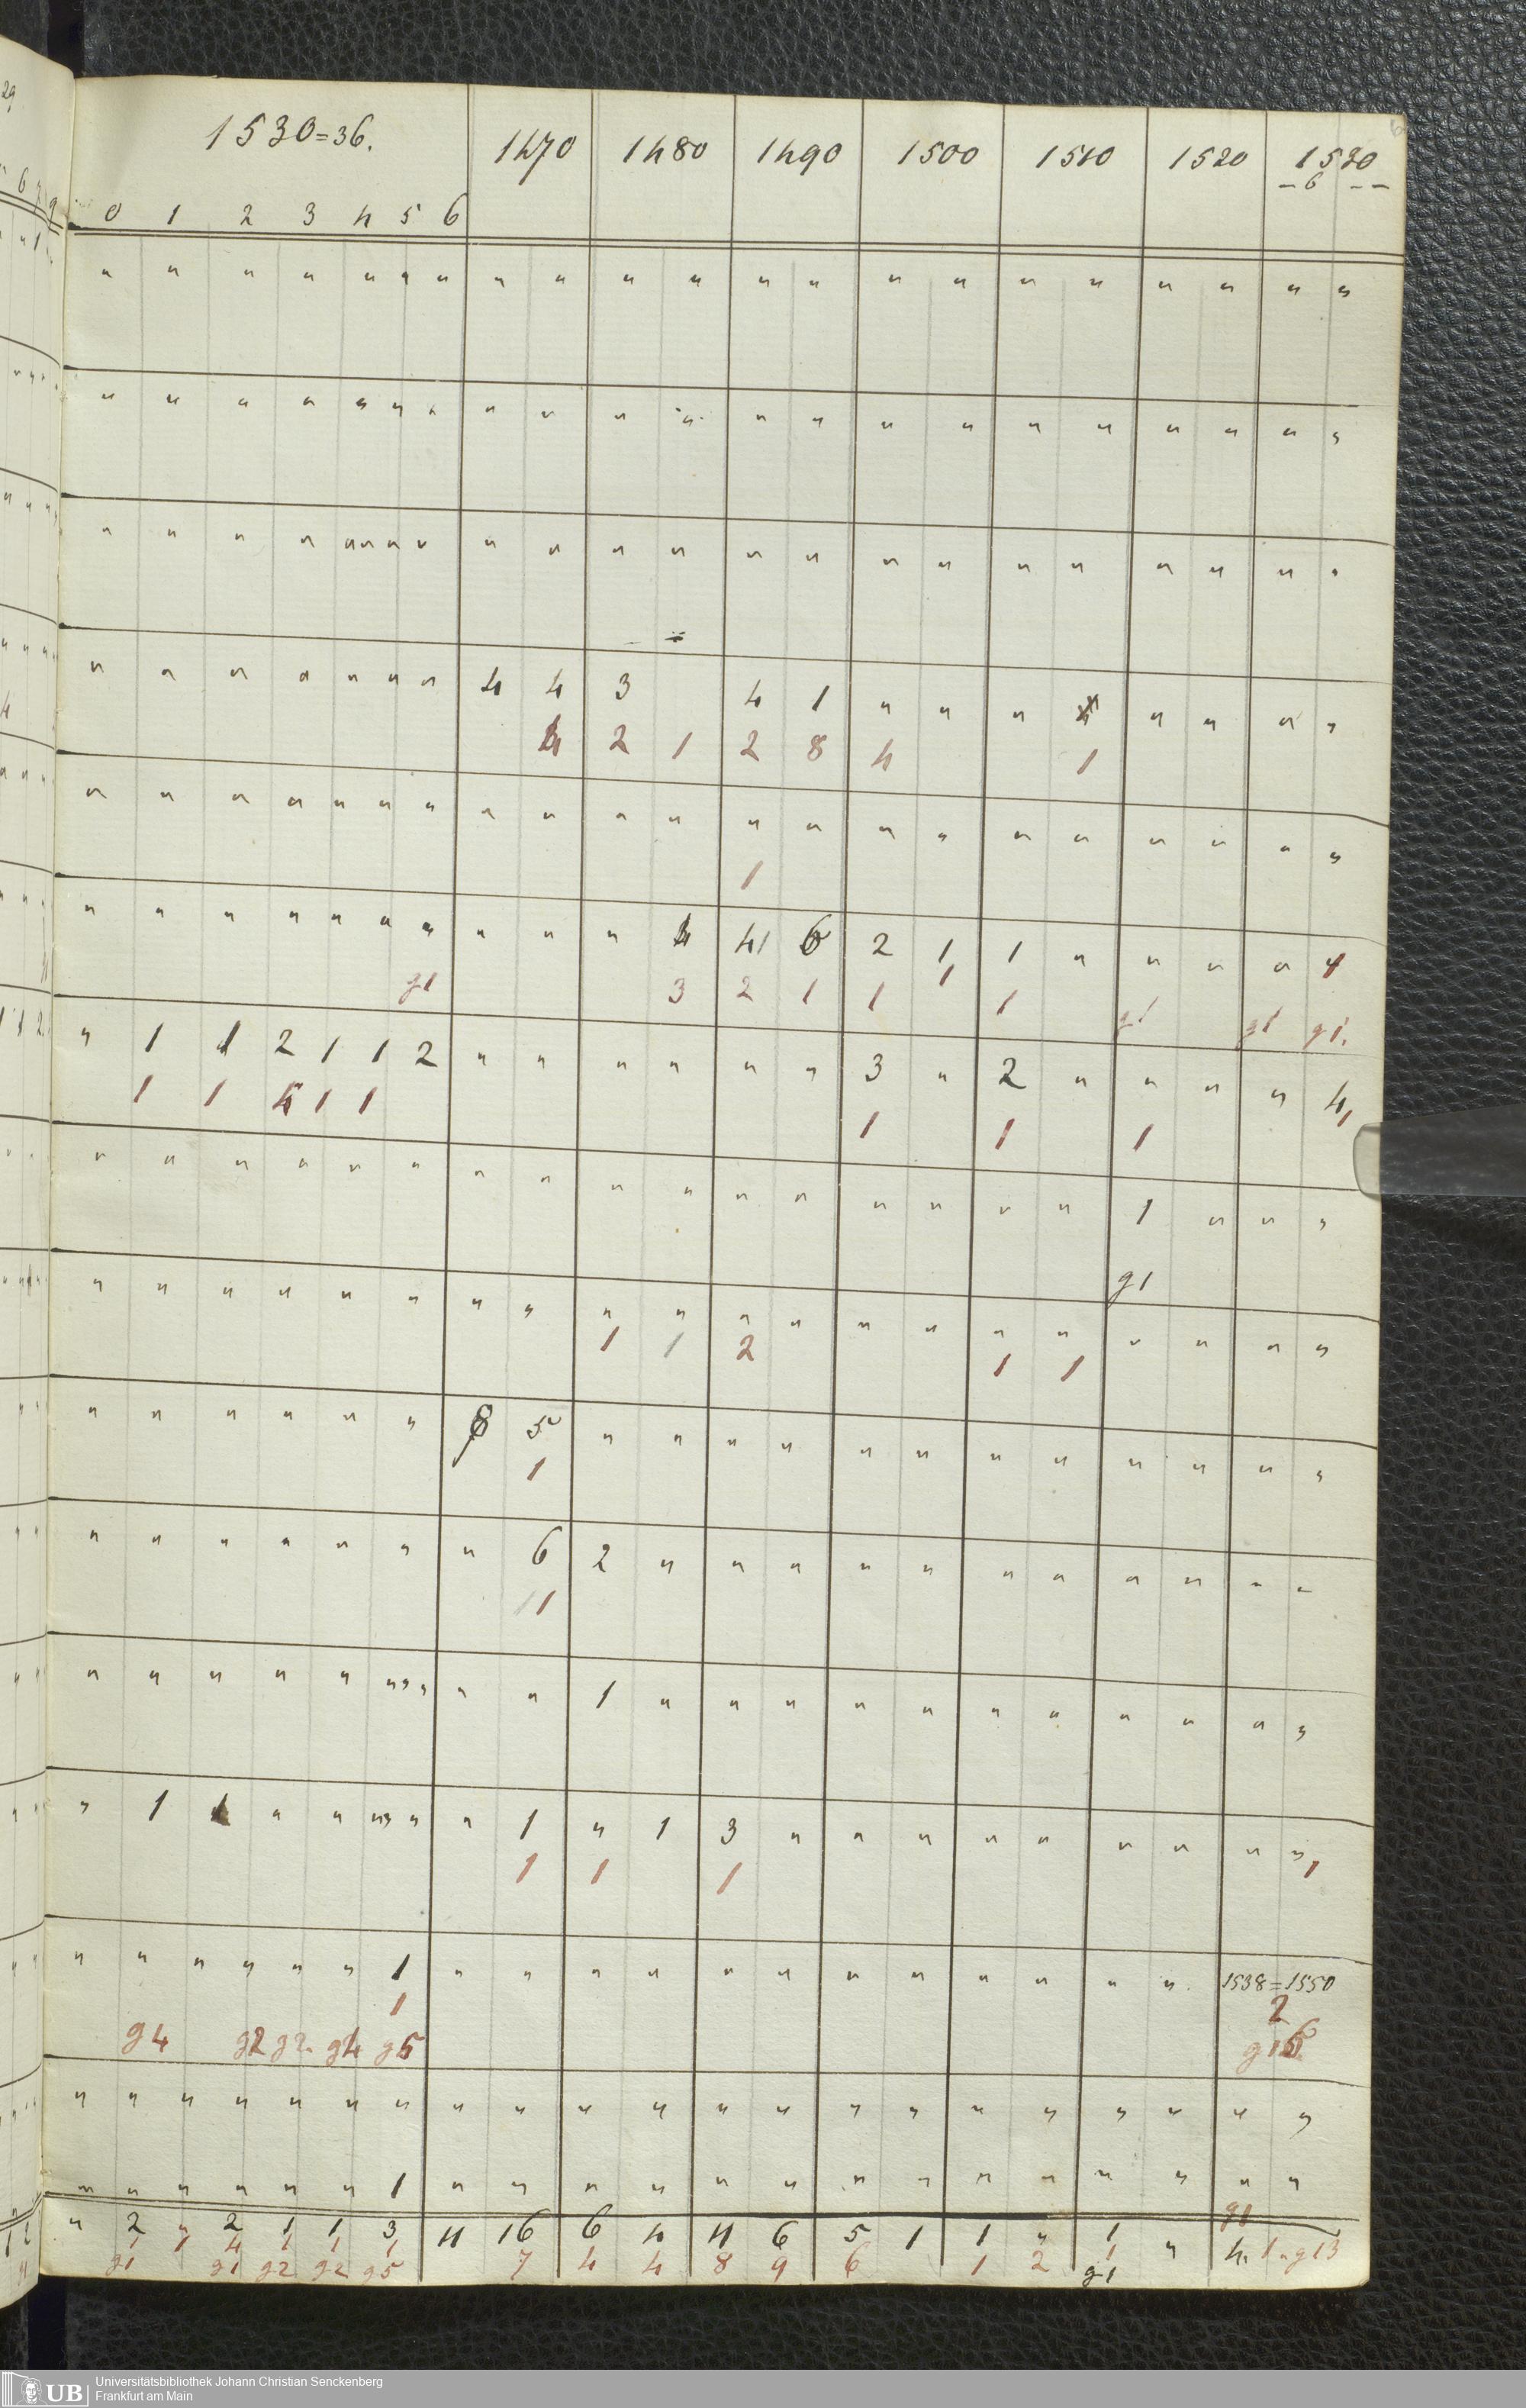 1530=36.	1470	1480	1490	1500	1510	1520	1530
– 6 – –
0 1 2 3 4 5 6
" " " " " " " " " " " " " " " " " " " " "
" " " " " " " " " " " " " " " " " " " " "
" " " " " " " " " " " " " " " " " " " " " "
" " " " " " " 4 4 3 4 1 " " " " " " "
4 2 1 2 8 4 1
" " " " " " " " " " " " " " " " " " " " "
1
" " " " " " " " " " 4 41 6 2 1 1 " " " " 1
g1 3 2 1 1 1 1 g1 g1 g1.
" 1 1 2 1 1 2 " " " " " " 3 " 2 " " " " 4
1 1 1 1 1 1 1 1
" " " " " " " " " " " " " " " " 1 " " "
g1
" " " " " " " " " " " " " " " " " " " "
1 1 2 1 1
" " " " " " 8 5 " " " " " " " " " " " "
1
" " " " " " " 6 2 " " " " " " " " " " "
11
" " " " " " " " " " 1 " " " " " " " " " " "
" 1 1 " " " " " " 1 " 1 3 " " " " " " " " "
1 1 1 1
" " " " " " 1 " " " " " " " " " " " " 1538=1550
1 2
g4 g2 g2. g4 g5 g16
" " " " " " " " " " " " " " " " " " " " "
" " " " " " 1 " " " " " " " " " " " " " "
g1
" 2 " 2 1 1 3 11 16 6 4 11 6 5 1 1 " 1 " 4. 1 " g13
1 1 4 1 1 1 7 4 4 8 9 6 1 2 1
g1 g1 g2 g2 g5 g1
UB
Universitätsbibliothek Johann Christian Senckenberg
Frankfurt am Main